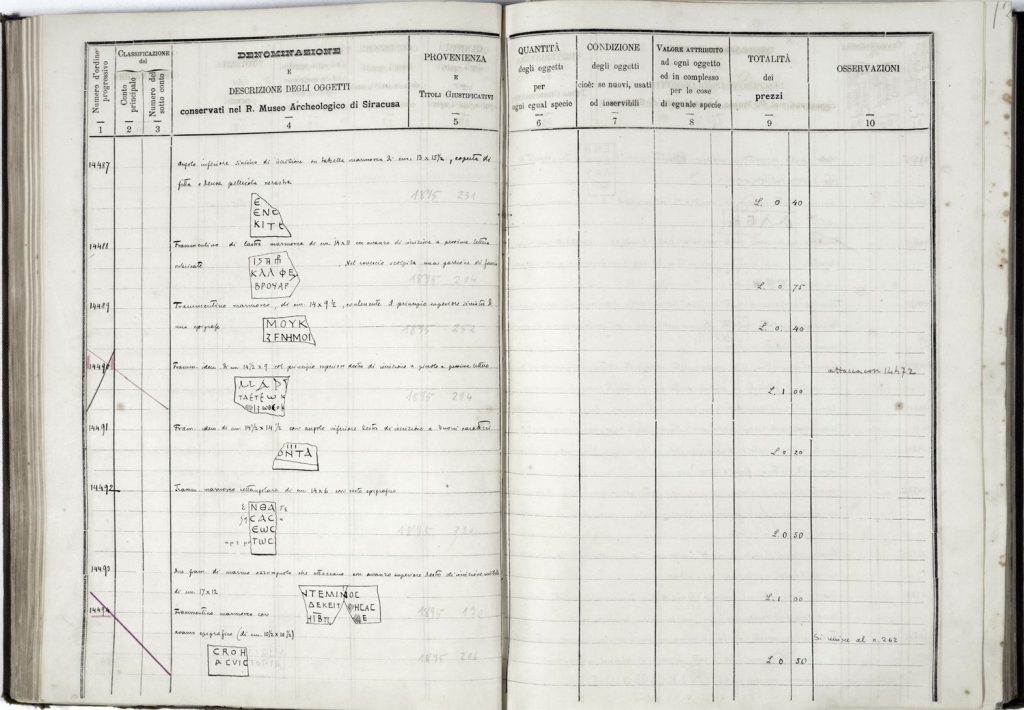 Numero d'ordine progressivo
CLASSIFICAZIONE
del
Conto principale
Numero del sotto conto
DENOMINAZIONE
E
DESCRIZIONE DEGLI OGGETTI
conservati nel R. Museo Archeologico di Siracusa
PROVENIENZA
E
TITOLI GIUSTIFICATIVI
QUANTITÀ
degli oggetti
per
ogni egual specie
CONDIZIONE
degli oggetti
cioè: se nuovi, usati
od inservibili
VALORE ATTRIBUITO
ad ogni oggetto
ed in complesso
per le cose
di eguale specie
TOTALITÀ
dei
prezzi
OSSERVAZIONI
1 2 3 4 5 6 7 8 9 10
14487 Angolo inferiore sinistro di iscrizione su tabella marmorea di cm. 13 x 15½, coperta di
fitta e densa pellicola 1895 231
Ε
ΕΝΣ
ΚΙΤΕ
L. 0 40
14488 Frammentino di lastra marmorea di cm 14 x 11 con avanzo di iscrizione a piccole lettere
. Nel rovescio scolpita una porzione di
ΚΛΛΦΕ
ΒΡΟΥΑΡ
1895 204
L. 0 75
14489 Frammentino marmoreo, di cm. 14 x 9½, contenente il principio superiore sinistro di
una epigrafe 1895 252
ΜΟΥΚ
ΞΕΝΗΜΟΙ
L. 0. 40
14490 Framm. idem di cm 14½ x 9 col principio superiore destro di iscrizione a grandi e piccole lettere
ΜΑΡΤ
ΤΑΕΤΕΩΝ
1895 214
L. 1 00
attacca con 14472
14491 Fram. idem di cm 14½ x 14½ con angolo inferiore destro di iscrizione a buoni caratteri
ΟΝΤΑ
L. 0. 20
14492 Framm. marmoreo rettangolare di cm 14 x 6 con resto epigrafico
ΝΘΑ
ϹΑϹ
ΕΩϹ
ΤΩϹ
1895
L. 0 50
14493 Due fram. di marmo che attaccano con avanzo superiore destro di iscrizione
di cm 17 x 12
ΝΤΕΜΙΝΟϹ
ΔΕΚΕΙΤ ΗϹΑϹ
Ε
L. 1 00
14494 Frammentino marmoreo con 1895
avanzo epigrafico (di cm. 10½ x 10½)
CROH
ACVIC
1895
Si unisce al n. 262
L. 0 50